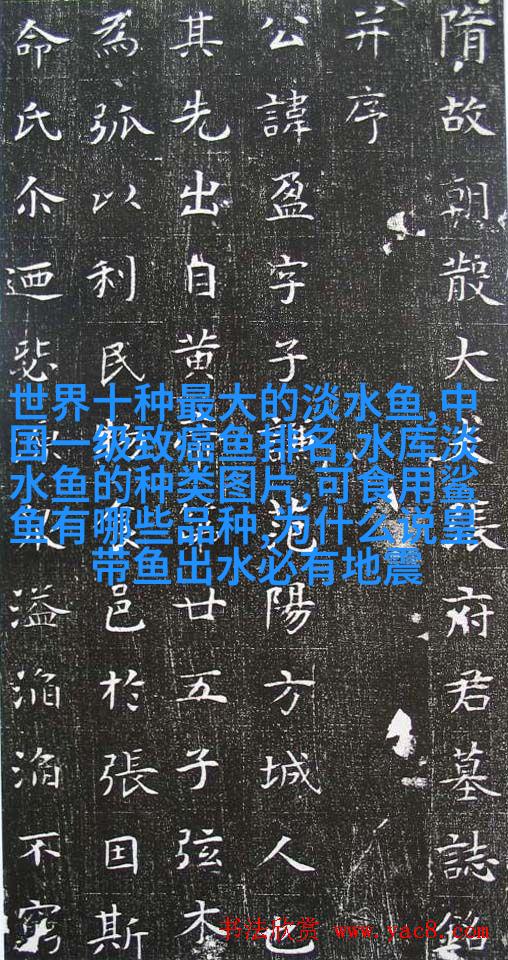 隋故朝散大夫張府君墓誌銘
并序
公諱盈字子謙范陽方城人也
其先出自黃帝第廿五子弦木
為弧以利民物食邑於張因斯
命氏尒迺源溢滔滔不窮
世界十种最大的淡水鱼,中
国一级致癌鱼排名,水库淡
水鱼的种类图片,可食用鲨
鱼有哪些品种,为什么说皇
带鱼出水必有地震
书法欣赏 www.yac8.com